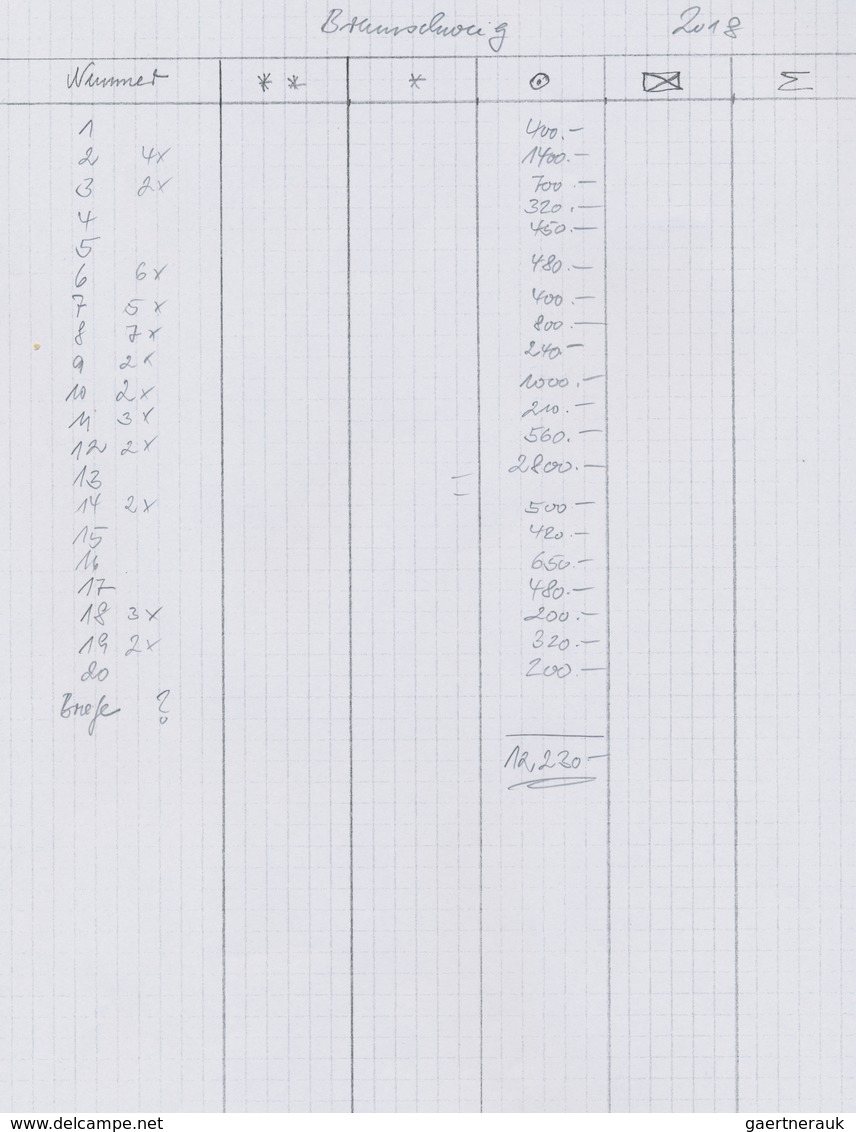 Braunschweig 2018
Nummer ** * ⊙ ⊠ Σ
1 400.—
2 4x 1400.—
3 2x 700.—
4 320.—
5 450.—
6 6x 480.—
7 5x 400.—
8 7x 800.—
9 2x 240.—
10 2x 1000.—
11 3x 210.—
12 2x 560.—
13 2800.—
14 2x = 500—
15 420.—
16 650.—
17 480.—
18 3x 200.—
19 2x 320.—
20 200.—
Briefe ?
12,230—
www.delcampe.net gaertnerauk